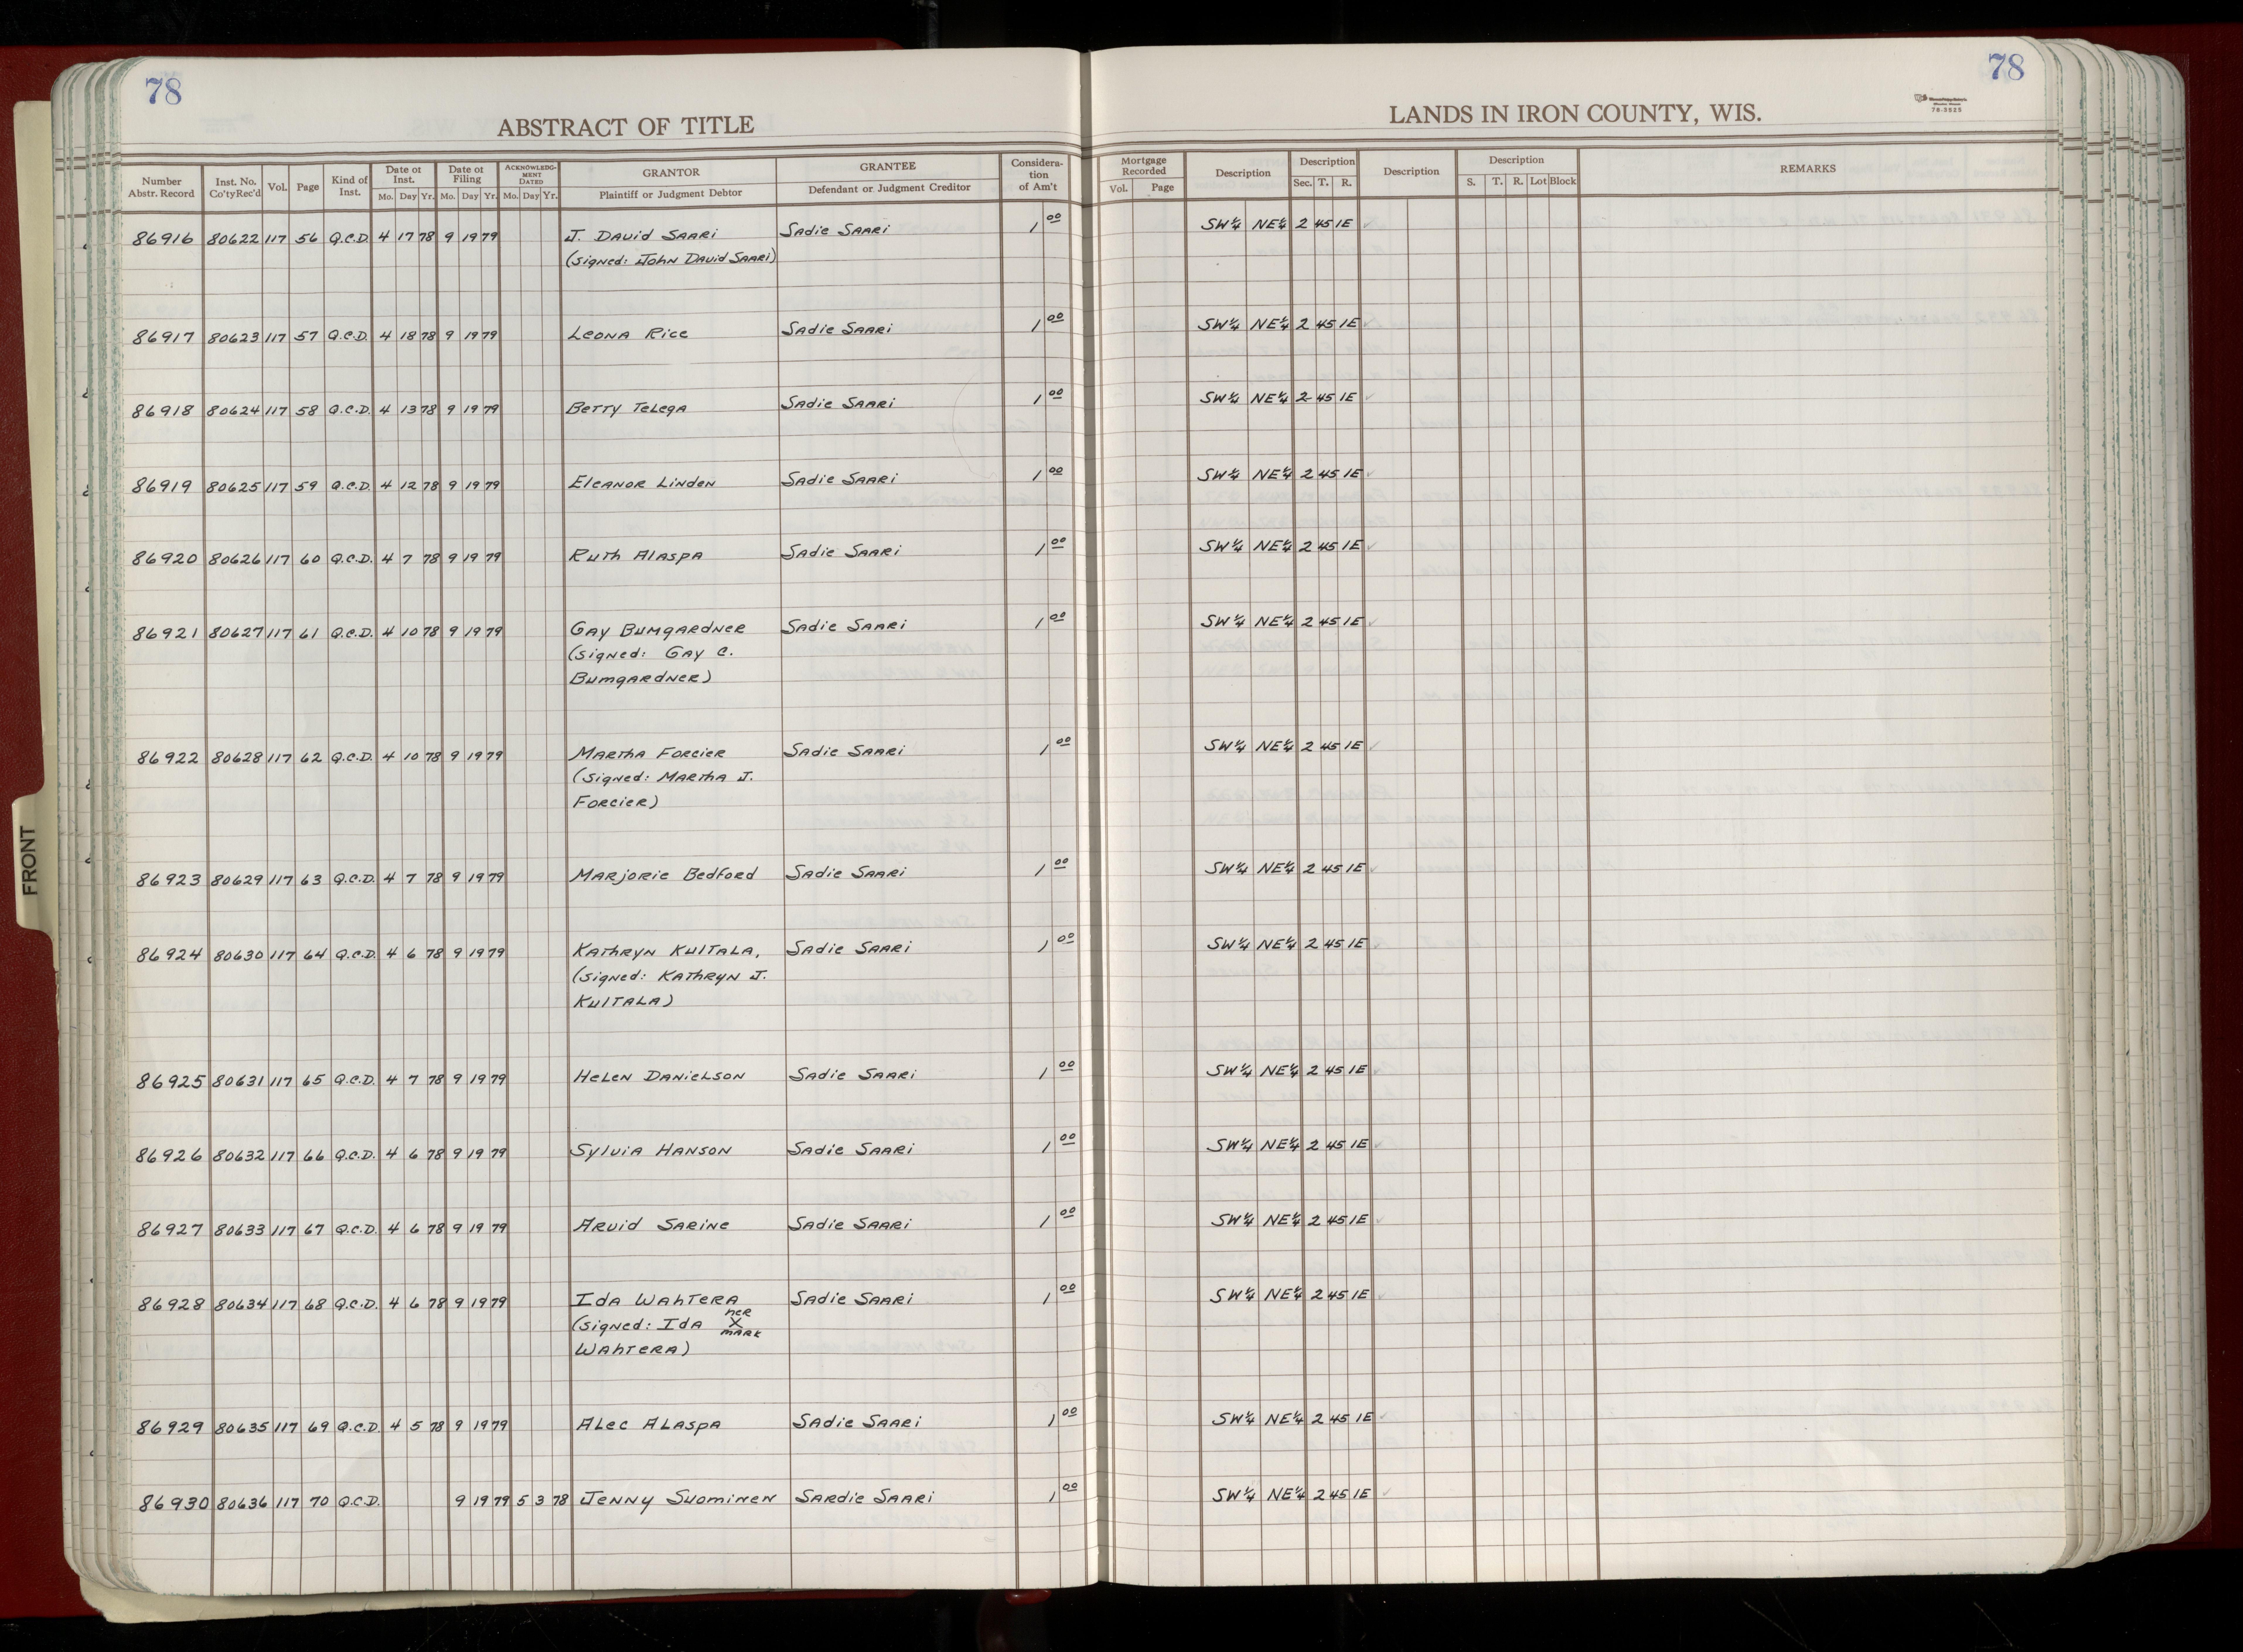 78
78
ABSTRACT OF TITLE
LANDS IN IRON COUNTY, WIS.
78-3525
Number Abstr. Record | Inst. No. Co'ty Rec'd | Vol. | Page | Kind of Inst. | Date of Inst. Mo. Day Yr. | Date of Filing Mo. Day Yr. | ACKNOWLEDGMENT DATED Mo. Day Yr. | GRANTOR Plaintiff or Judgment Debtor | GRANTEE Defendant or Judgment Creditor | Consideration of Am't | Mortgage Recorded Vol. Page | Description | Description Sec. T. R. | Description | Description S. T. R. Lot Block | REMARKS
86916 80622 117 56 Q.C.D. 4 17 78 9 19 79 J. David Saari Sadie Saari 1 00 SW¼ NE¼ 2 45 1E
(signed: John David Saari)
86917 80623 117 57 Q.C.D. 4 18 78 9 19 79 Leona Rice Sadie Saari 1 00 SW¼ NE¼ 2 45 1E
86918 80624 117 58 Q.C.D. 4 13 78 9 19 79 Betty Telega Sadie Saari 1 00 SW¼ NE¼ 2 45 1E
86919 80625 117 59 Q.C.D. 4 12 78 9 19 79 Eleanor Linden Sadie Saari 1 00 SW¼ NE¼ 2 45 1E
86920 80626 117 60 Q.C.D. 4 7 78 9 19 79 Ruth Alaspa Sadie Saari 1 00 SW¼ NE¼ 2 45 1E
86921 80627 117 61 Q.C.D. 4 10 78 9 19 79 Gay Bumgardner Sadie Saari 1 00 SW¼ NE¼ 2 45 1E
(signed: Gay C.
Bumgardner)
86922 80628 117 62 Q.C.D. 4 10 78 9 19 79 Martha Forcier Sadie Saari 1 00 SW¼ NE¼ 2 45 1E
(signed: Martha J.
Forcier)
86923 80629 117 63 Q.C.D. 4 7 78 9 19 79 Marjorie Bedford Sadie Saari 1 00 SW¼ NE¼ 2 45 1E
86924 80630 117 64 Q.C.D. 4 6 78 9 19 79 Kathryn Kultala, Sadie Saari 1 00 SW¼ NE¼ 2 45 1E
(signed: Kathryn J.
Kultala)
86925 80631 117 65 Q.C.D. 4 7 78 9 19 79 Helen Danielson Sadie Saari 1 00 SW¼ NE¼ 2 45 1E
86926 80632 117 66 Q.C.D. 4 6 78 9 19 79 Sylvia Hanson Sadie Saari 1 00 SW¼ NE¼ 2 45 1E
86927 80633 117 67 Q.C.D. 4 6 78 9 19 79 Arvid Sarine Sadie Saari 1 00 SW¼ NE¼ 2 45 1E
86928 80634 117 68 Q.C.D. 4 6 78 9 19 79 Ida Wahtera Sadie Saari 1 00 SW¼ NE¼ 2 45 1E
(signed: Ida her X mark
Wahtera)
86929 80635 117 69 Q.C.D. 4 5 78 9 19 79 Alec Alaspa Sadie Saari 1 00 SW¼ NE¼ 2 45 1E
86930 80636 117 70 Q.C.D. 9 19 79 5 3 78 Jenny Suominen Sardie Saari 1 00 SW¼ NE¼ 2 45 1E
FRONT